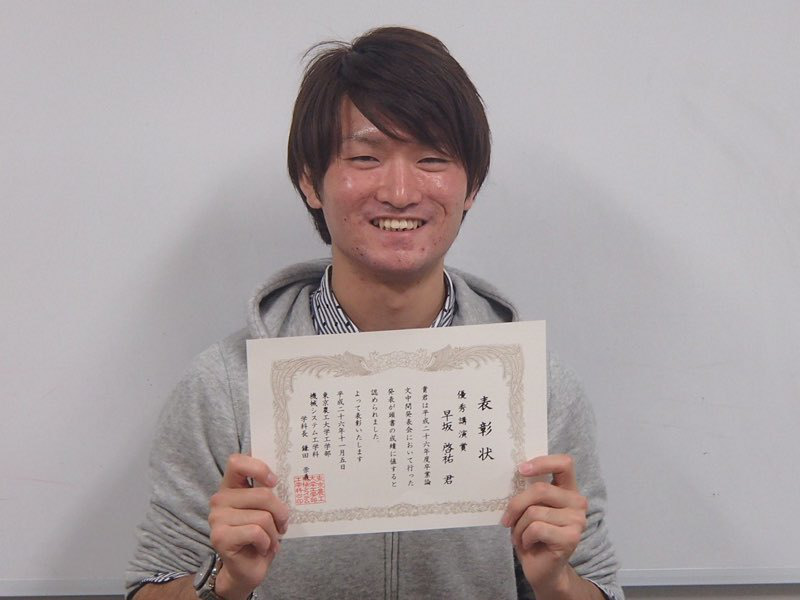 表彰状
優秀講演賞
早坂 啓祐 君
貴君は平成二十六年度卒業論
文中間発表会において行った
発表が頭書の成績に値すると
認められました
よって表彰いたします
平成二十六年十一月五日
東京農工大学工学部
機械システム工学科
学科長 鎌田 崇義